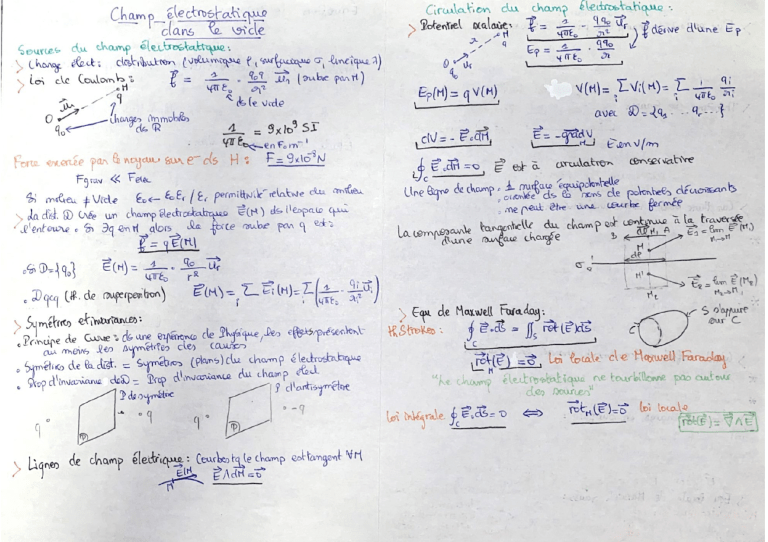 Champ électrostatique
dans le vide
Sources du champ électrostatique:
> Charge élect: distribution (volumique ρ, surfacique σ, linéique λ)
> Loi de Coulomb: f = 1/4πε₀ · q₀q/r² u (subie par M)
ds le vide
O q₀ u M q
charges immobiles
ds R
1/4πε₀ = 9×10⁹ SI
en F.m⁻¹
Force exercée par le noyau sur e⁻ ds H: F = 9×10⁻⁸ N
Fgrav << Félec
Si milieu ≠ Vide ε₀ ← ε₀εr / εr permittivité relative du milieu
> la dist. D crée un champ électrostatique E(M) ds l'espace qui
l'entoure. Si ∃q en M alors la force subie par q est:
f = q E(M)
• Si D={q₀} E(M) = 1/4πε₀ · q₀/r² ur
• D qcq (th. de superposition) E(M) = Σi Ei(M) = Σi (1/4πε₀ · qi/ri² ui)
> Symétries et invariances:
• Principe de Curie: ds une expérience de Physique, les effets présentent
au moins les symétries des causes
• Symétries de la dist. = Symétries (plans) du champ électrostatique
• Prop d'invariance de D = Prop d'invariance du champ élect
P de symétrie
q • • q
P d'antisymétrie
q • • -q
> Lignes de champ électrique: Courbes tq le champ est tangent ∀M
E(M)
M
E∧dM=0
Circulation du champ électrostatique:
> Potentiel scalaire: f = 1/4πε₀ · qq₀/r² ur
f dérive d'une Ep
Ep = 1/4πε₀ · qq₀/r
O q₀ ur r M q
Ep(M) = q V(M)
V(M) = Σi Vi(M) = Σi 1/4πε₀ qi/ri
avec D = {q₁ ... qi ...}
dV = - E.dM
E = -grad V
E en V/m
∮C E.dM = 0 E est à circulation conservative
Une ligne de champ • ⊥ surface équipotentielle
• orientée ds le sens de potentiels décroissants
• ne peut être une courbe fermée
La composante tangentielle du champ est continue à la traversée
d'une surface chargée
> Equ de Maxwell Faraday:
th. Strokes: ∮C E.ds = ∬S rot(E)dS
S s'appuie
sur C
rotM(E) = 0 Loi locale de Maxwell Faraday
"Le champ électrostatique ne tourbillonne pas autour
des sources"
Loi intégrale ∮C E.ds = 0 ⟺ rotM(E) = 0 loi locale
rot(E) = ∇∧E